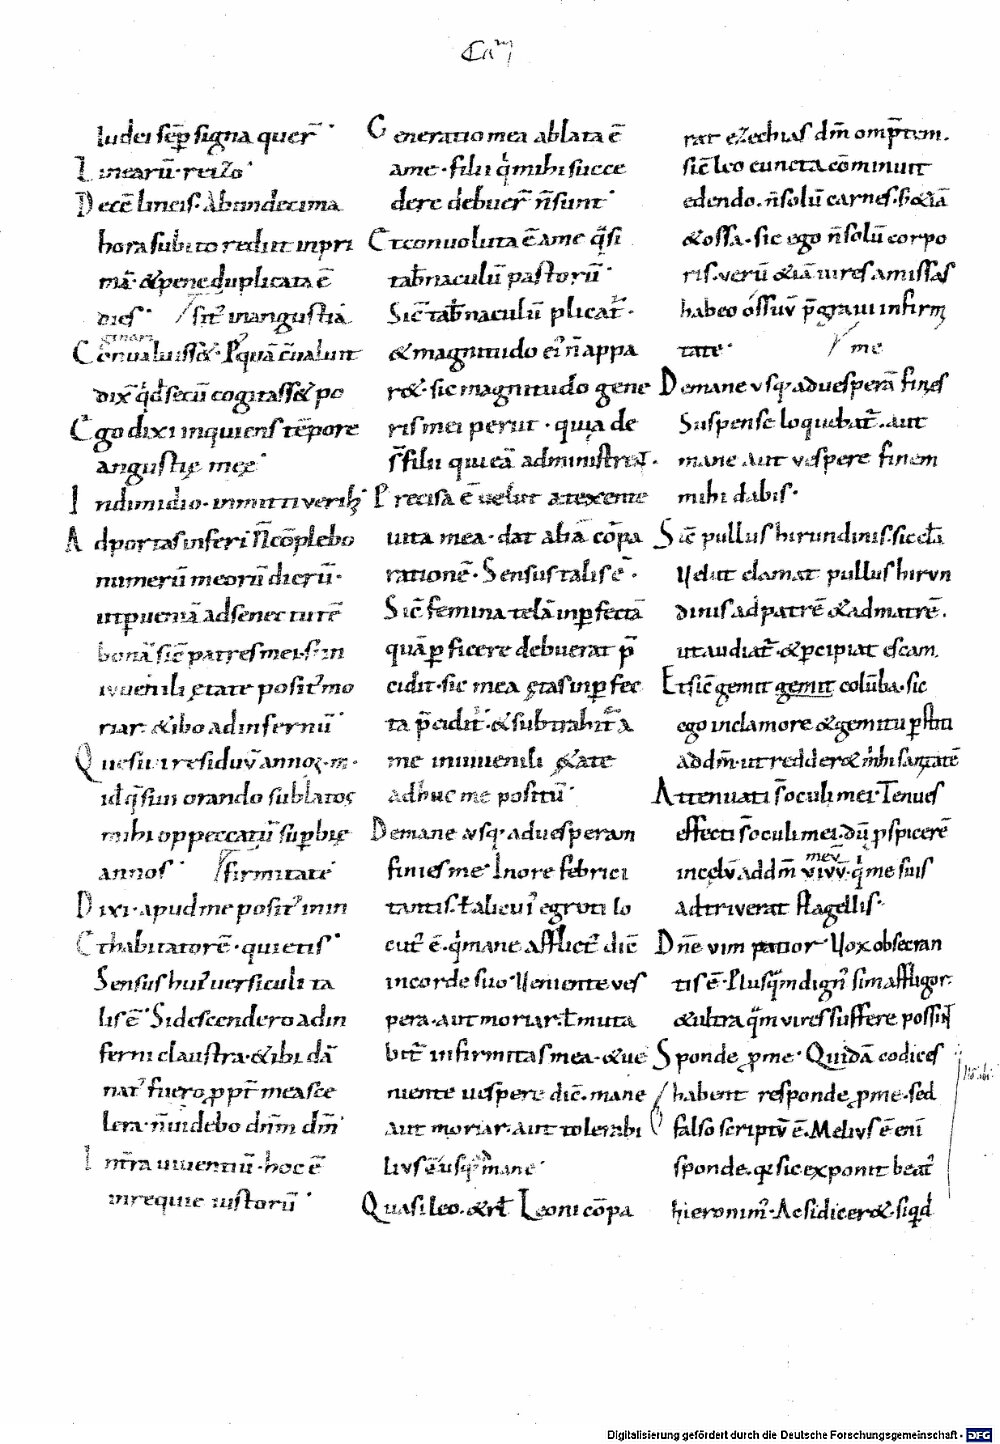 Iudei sēp signa quer̄
Linearū · reizo
Decē lineis. Abundecima
hora subito rediit inpri
mā · & pene duplicata ē
dies · / sit᷒ in angustiā
Conualuiss&. P᷒quā cōualuit
dix̄ qd̄ secū cogitass& pc
Ego dixi inquiens tēpore
angustię meę
In dimidio · inmitti verib;
Ad portas inferi N̄ cōplebo
numerū meorū dierū ·
ut puenia adsenectutē
bonā sic̄ patres mei · s; in
iuuenili ętate posit᷒ mo
riar. & ibo ad infernū
Quesiui residuv̄ annoꝝ · m ·
id q̄ sum orando sublatos
mihi op peccatū supbię
annos · / firmitate
Dixi · apud me posit᷒ in in
Et habitatorē · quietis
Sensus hui᷒ uersiculi ta
lis ē · Si descendero ad in
ferni claustra · & ibi dā
nat᷒ fuero ꝓpt̄ mea sce
lera · n̄ uidebo dn̄m dm̄
Intra uiuentiū · hoc ē
in requie iustorū
Generatio mea ablata ē
a me · filii q̄ mihi succe
dere debuer̄ n̄ sunt
Et conuoluta ē a me q̄si
tab̄naculū pastorū
Sic̄ tab̄naculū plicat᷒ ·
& magnitudo ei᷒ n̄ appa
r& · sic magnitudo gene
ris mei perut · quia de
s̄ filii qui eā administrent ·
Precisa ē uelut a texente
uita mea · dat aliā cōpa
rationē · Sensus talis ē ·
Sic̄ femina telā inpfectā
quā pficere debuerat p̄
cidit · sic mea ętas inpfec
ta p̄cidit᷒ · & subtrahit᷒ a
me in iuuenili &ate
adhuc me positū
De mane vsq; ad uesperam
finies me · In ore febrici
tantis · ł alicui᷒ egroti lo
cut᷒ ē · q̄ mane afflict᷒ diē
in corde suo · Ueniente ves
pera · aut moriar · ł muta
bit᷒ infirmitas mea · & ue
niente uespere dic̄ · mane
aut moriar · aut tolerabi
livs ē usq; mane
Quasi leo · & rł Leoni cōpa
rat ezechias dm̄ omp̄tem ·
sic̄ leo cuncta cōminuit
edendo · n̄ solū carnes · s; &iā
& ossa · sic ego n̄ solū corpo
ris · verū &iā uires amissas
habeo ossuv̄ p̄ graui infirm
tate · / me
De mane vsq; ad uesperā fines
Suspense loquebat᷒ · aut
mane aut vespere finem
mihi dabis ·
Sic̄ pullus hirundinis · sic clā
Velut clamat pullus hirvn
dinis ad patrē & ad matrē ·
ut audiat᷒ · & pcipiat escam.
Et sic̄ gemit gemit colūba · sic
ego in clamore & gemitu pstiti
ad dm̄ · ut redder& mihi sanitatē
Attenuati s̄ oculi mei · Tenues
effecti s̄ oculi mei · dū pspicerē
in cęlv̄ ad dm̄ vivv̄ mev̄ · q̄ me suis
adtriverat flagellis ·
Dn̄e vim patior · Uox obsecran
tis ē · Plusq̄m dign᷒ sim affligor ·
& ultra q̄m vires suffere possin̄t
Sponde ꝓ me · Quidā codices
habent responde ꝓ me · sed
falso scriptv̄ ē · Melivs ē eni
sponde · qđ sic exponit beat᷒
hieronim᷒ · Ac si dicer& · siqd̄